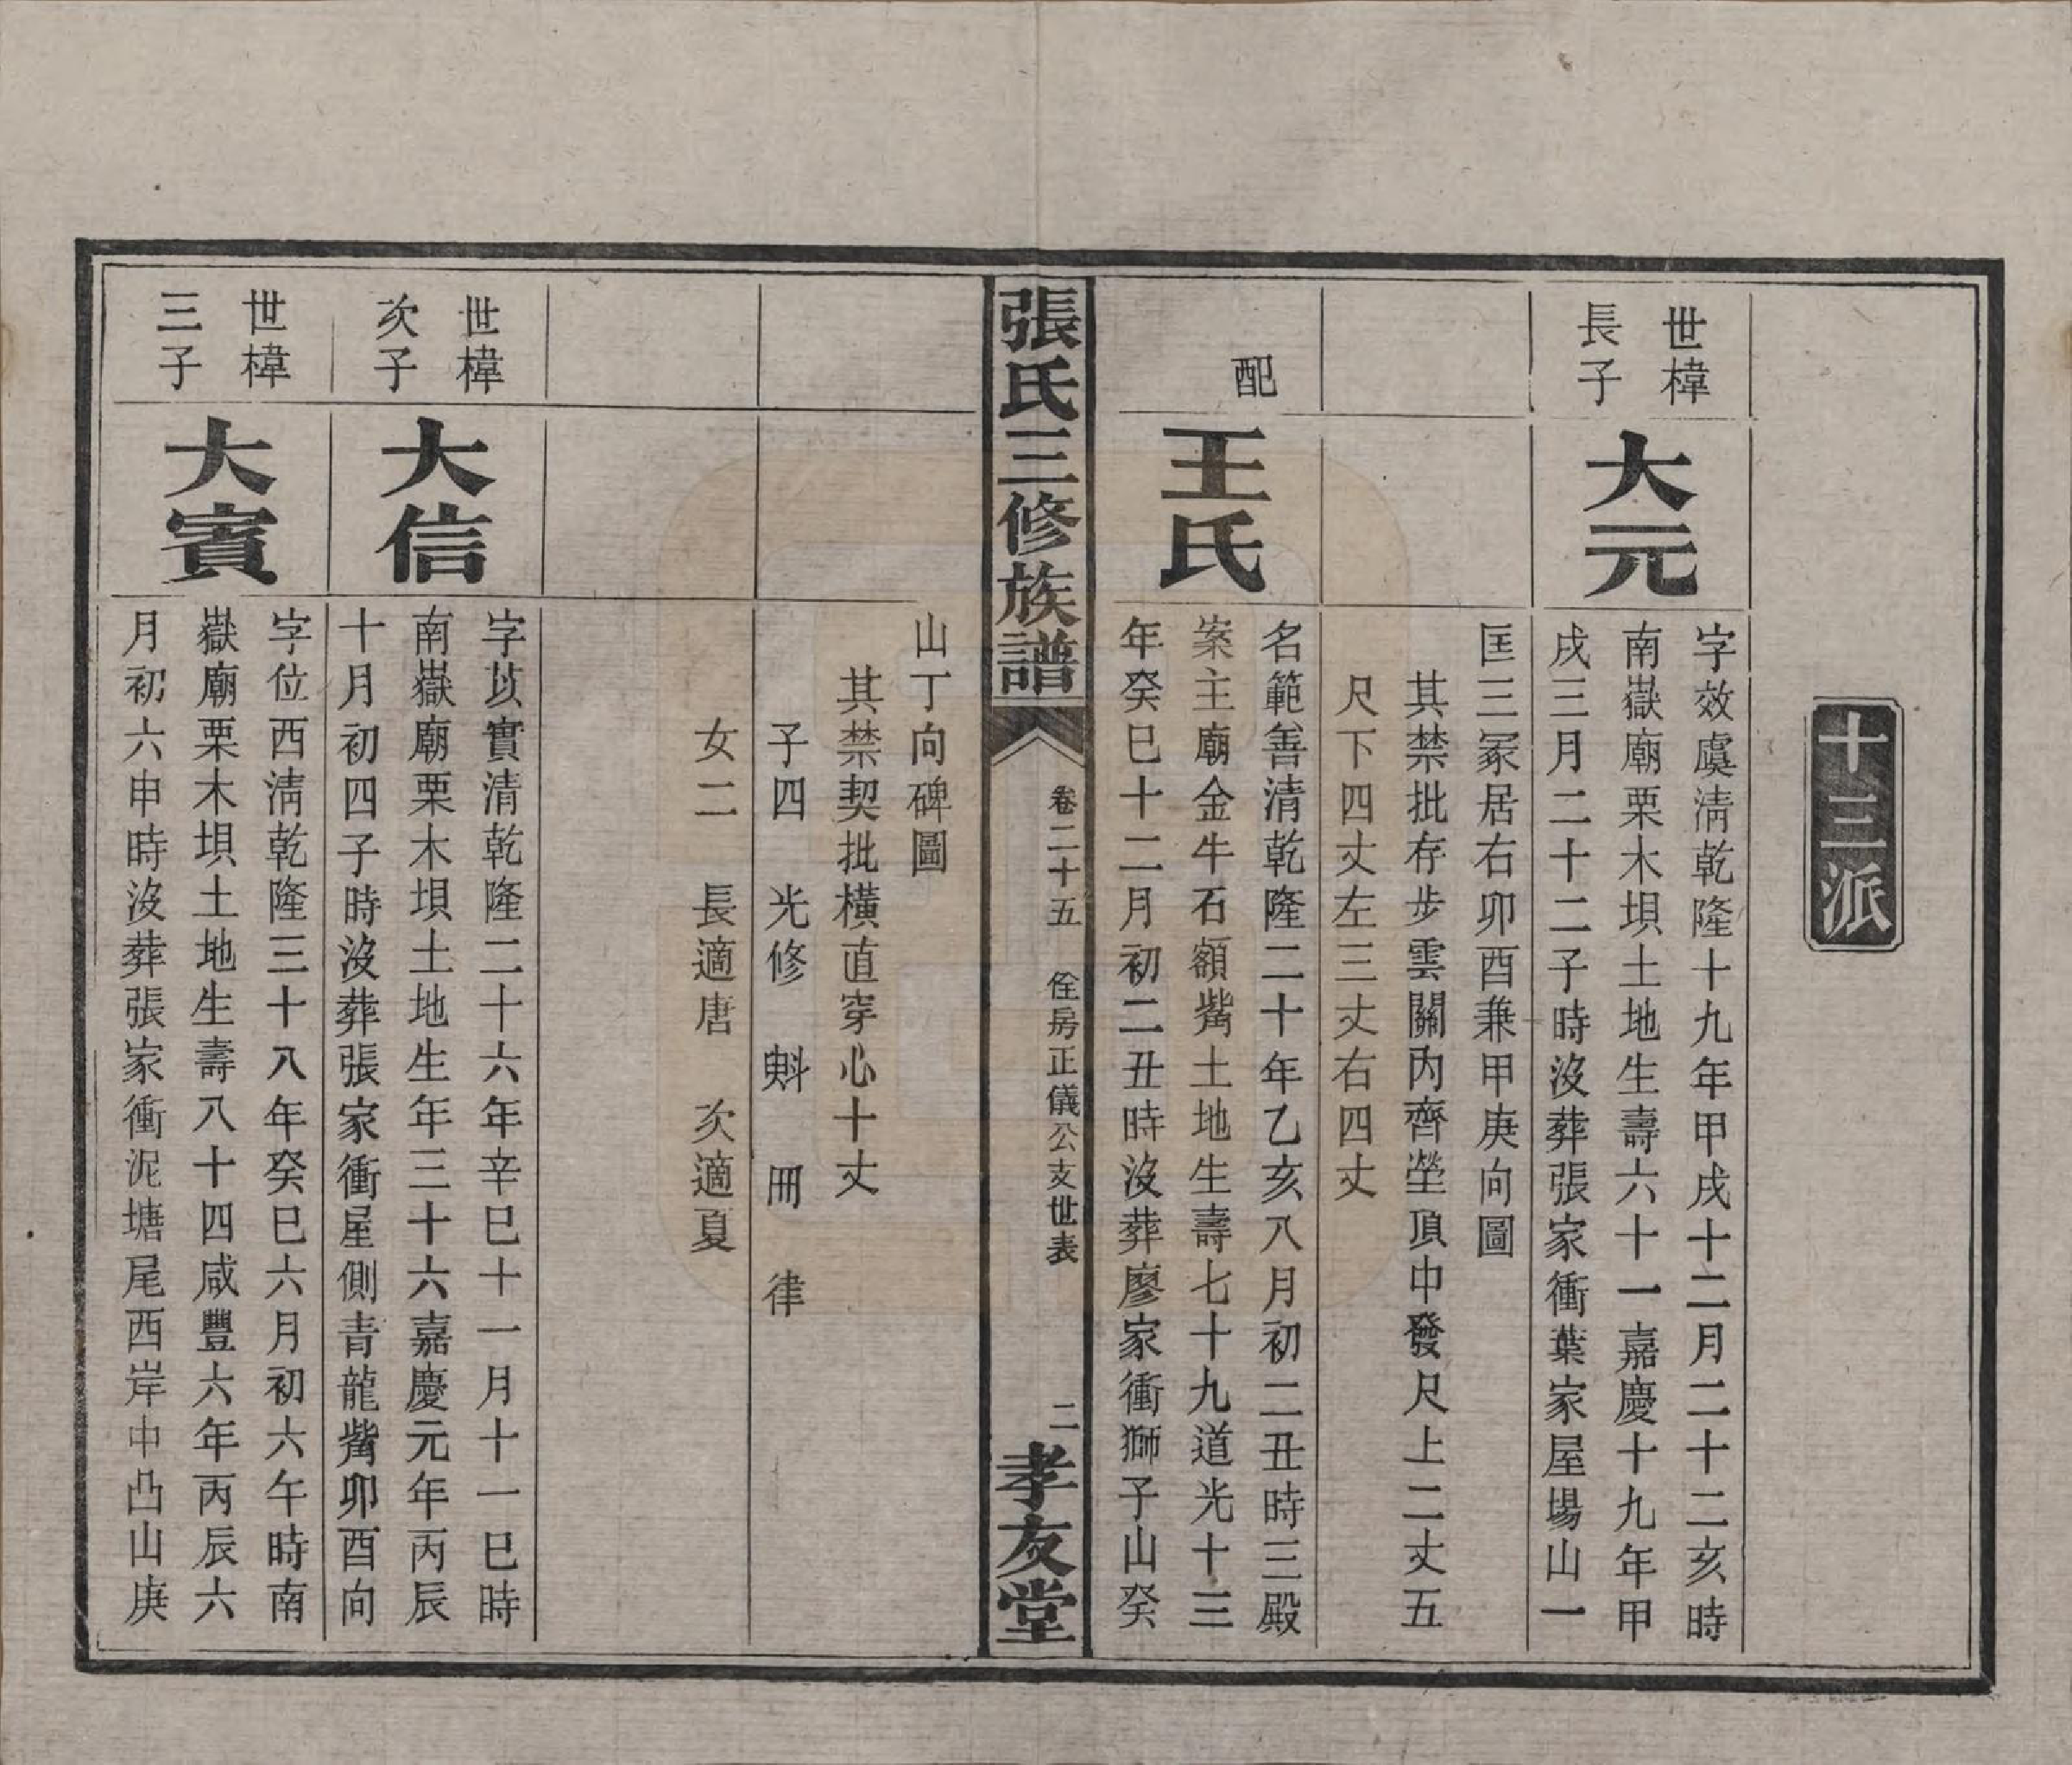 十三派
世樟
長子
大元
字效虞清乾隆十九年甲戌十二月二十二亥時
南嶽廟栗木垻土地生壽六十一嘉慶十九年甲
戌三月二十二子時沒葬張家衝葉家屋場山一
匡三冢居右卯酉兼甲庚向圖
其禁批存步雲關內齊塋頂中發尺上二丈五
尺下四丈左三丈右四丈
配
王氏
名範善清乾隆二十年乙亥八月初二丑時三殿
案主廟金牛石額觜土地生壽七十九道光十三
年癸巳十二月初二丑時沒葬廖家衝獅子山癸
張氏三修族譜
卷二十五 佺房正儀公支世表
二
孝友堂
山丁向碑圖
其禁契批橫直穿心十丈
子四 光修 蚪 冊 律
女二 長適唐 次適夏
世樟
次子
大信
字苡實清乾隆二十六年辛巳十一月十一巳時
南嶽廟栗木垻土地生年三十六嘉慶元年丙辰
十月初四子時沒葬張家衝屋側青龍觜卯酉向
世樟
三子
大賓
字位西清乾隆三十八年癸巳六月初六午時南
嶽廟栗木垻土地生壽八十四咸豐六年丙辰六
月初六申時沒葬張家衝泥塘尾西岸中凸山庚